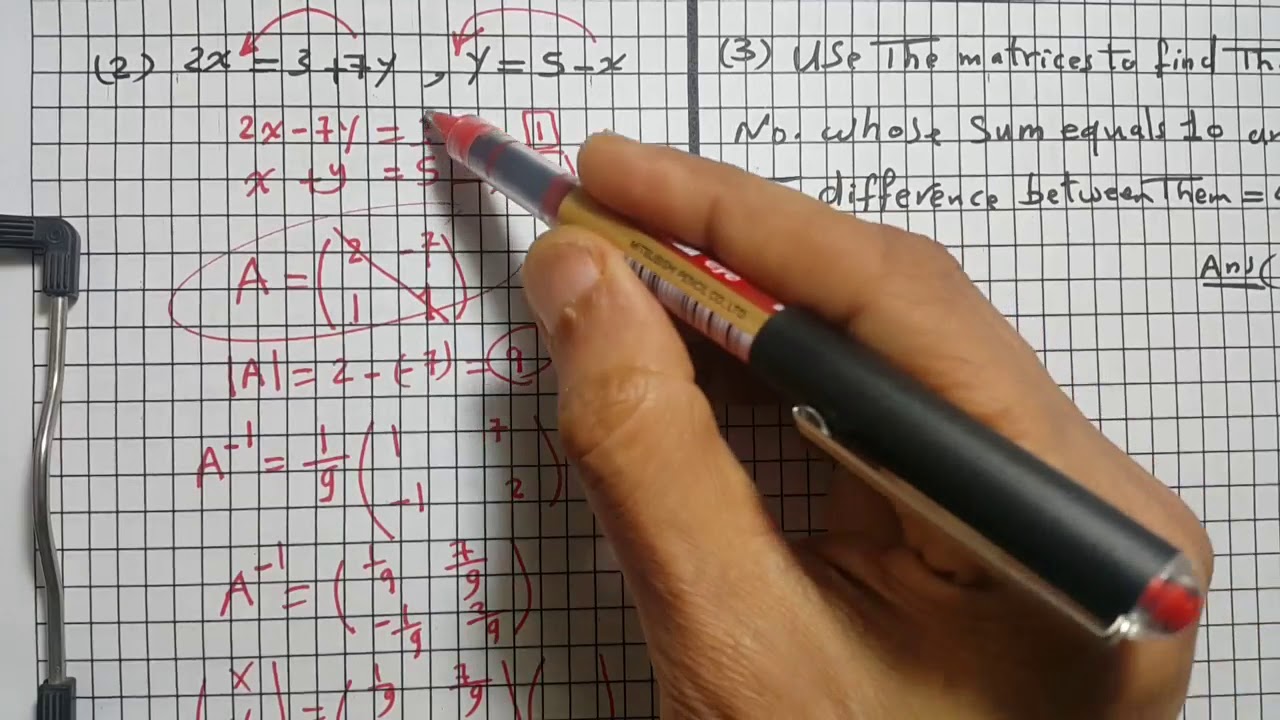 (2) 2x = 3 + 7y , y = 5 - x
2x - 7y =
1
x + y = 5
A = (2 -7
1 1)
|A| = 2 - (-7) = 9
A⁻¹ = 1/9 (1 7
-1 2)
A⁻¹ = (1/9 7/9
-1/9 2/9)
(x
) = (1/9 7/9) ( )
(3) Use The matrices to find
No. whose sum equals 10
difference between Them =
Ans (
MITSUBISHI PENCIL CO., LTD